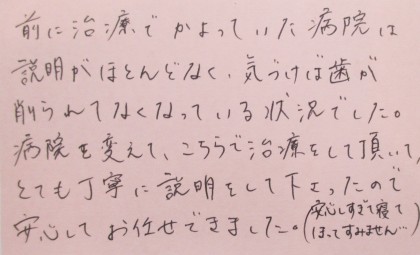 前に治療でかよっていた病院は
説明がほとんどなく、気づけば歯が
削られてなくなっている状況でした。
病院を変えて、こちらで治療をして頂いて、
とても丁寧に説明をして下さったので
安心してお任せできました。(安心しすぎて寝て
ほってすみません…)